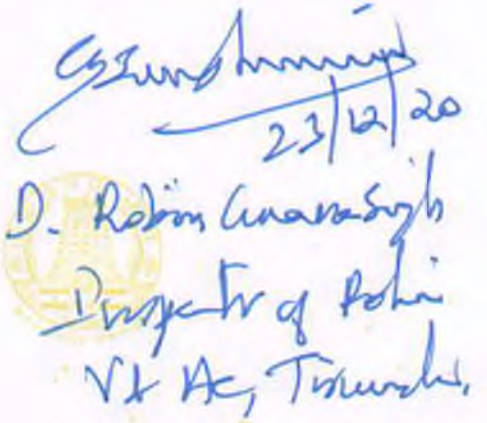 23/12/20
D. Robin Gnanasingh
Inspector of Police
V & AC, Tirunelveli.